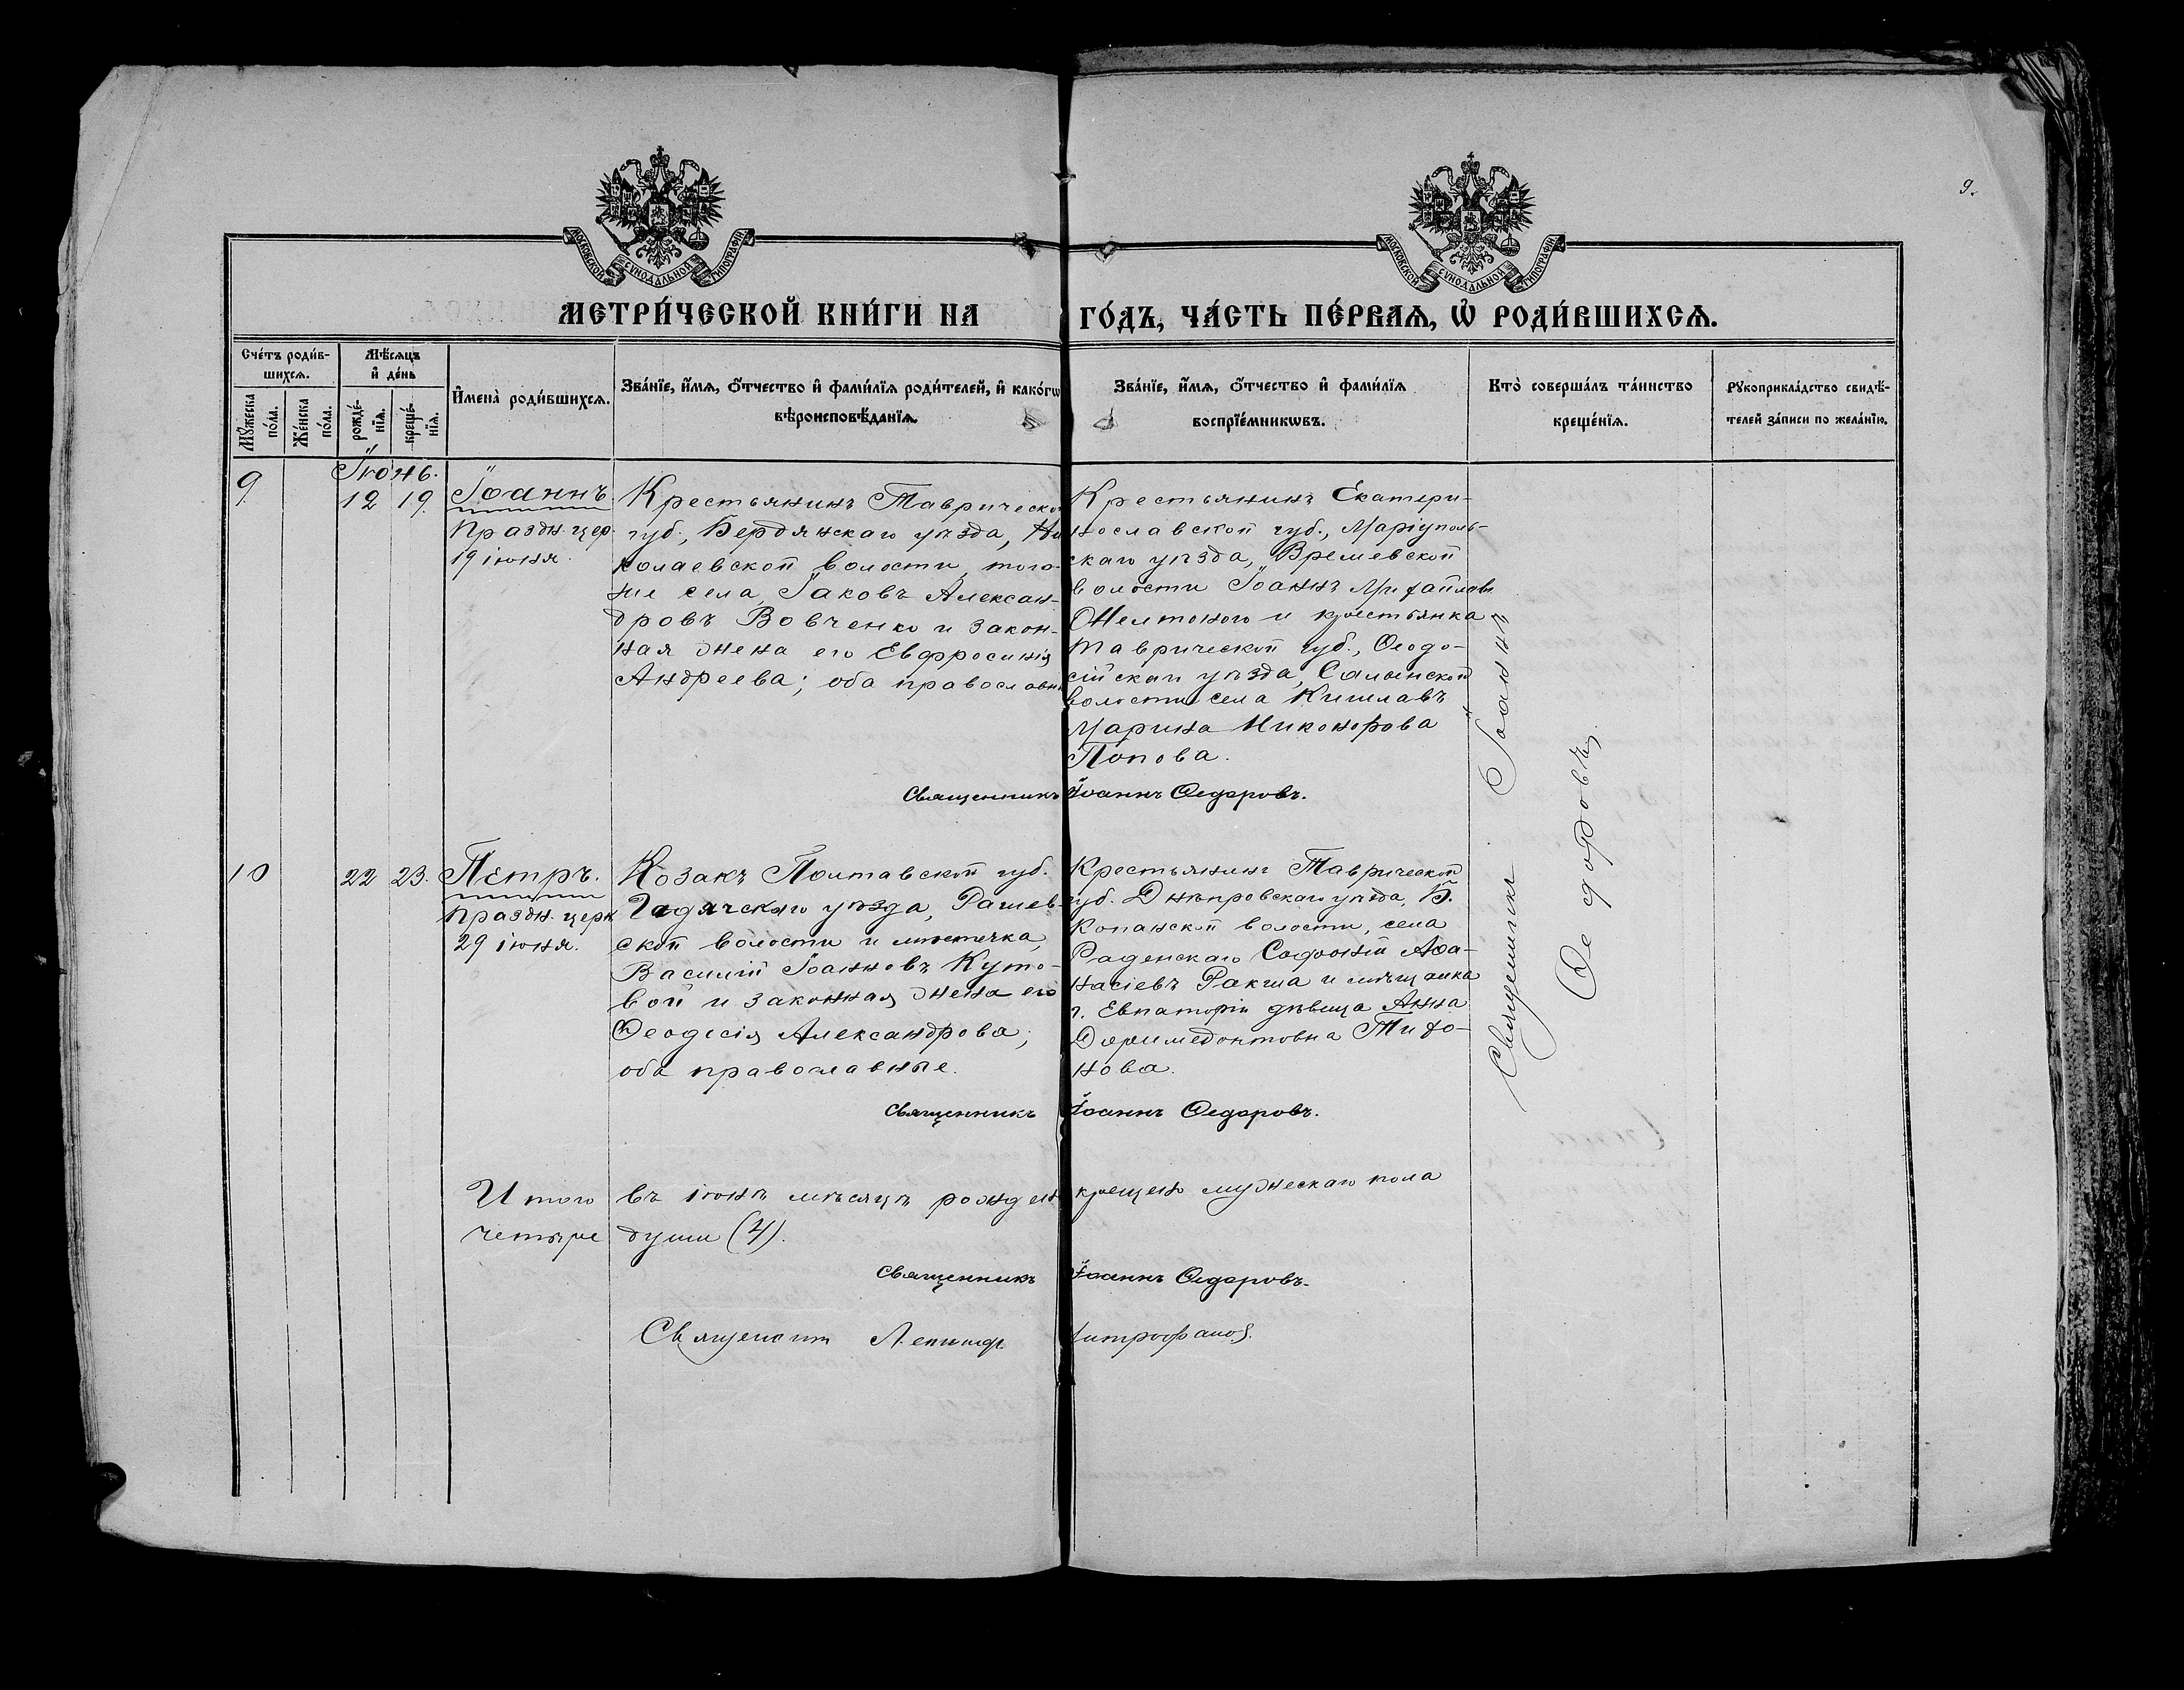 9.
МОСКОВСКОЙ СУНОДАЛЬНОЙ ТИПОГРАФІИ
МОСКОВСКОЙ СУНОДАЛЬНОЙ ТИПОГРАФІИ
МЕТРИ́ЧЕСКОЙ КНИ́ГИ НА ГО́ДЪ, ЧА́СТЬ ПЕ́РВАЯ, Ѿ РОДИ́ВШИХСЯ.
Сче́тъ роди́в-
шихся.
Мѣ́сяцъ
и҆ де́нь
Му́жеска
по́ла.
Же́нска
по́ла.
рожде́-
нїя.
креще́-
нїя.
И҆мена̀ роди́вшихся.
Зва́нїе, и҆́мя, ѻ҆́тчество и҆ фами́лїя роди́телей, и҆ како́гѡ
вѣроисповѣ́данїя.
Зва́нїе, и҆́мя, ѻ҆́тчество и҆ фами́лїя
воспрїе́мникѡвъ.
Кто̀ соверша́лъ та́инство
креще́нїя.
Рукоприкла́дство свидѣ́-
телей за́писи по жела́нїю.
Іюнь.
9. 12 19. Іоаннъ.
Праздн. цер.
19 іюня.
Крестьянинъ Таврической
губ., Бердянскаго уѣзда, Ни
колаевской волости, того-
же села, Іаковъ Алексан-
дровъ Вовченко и закон-
ная жена его Евфросинія
Андреева; оба православн
Крестьянинъ Екатери-
нославской губ., Маріуполь-
скаго уѣзда, Времевской
волости Іоаннъ Михайловъ
Желтоного и крестьянка
Таврической губ., Ѳеодо-
сійскаго уѣзда, Салынской
волости села Кишлавъ
Марина Никонорова
Попова.
Священникъ Іоаннъ Ѳедоровъ.
Священникъ Іоаннъ
Ѳеодоровъ
10 22 23. Петръ.
Праздн. церк
29 іюня.
Козакъ Полтавской губ.
Гадячскаго уѣзда, Рашев-
ской волости и мѣстечка,
Василій Іоанновъ Куто-
вой и законная жена его
Ѳеодосія Александрова;
оба православные.
Крестьянинъ Таврической
губ. Днѣпровскаго уѣзда, Б.
Копанской волости, села
Раденскаго Софоній Аѳа-
насіевъ Ракша и мѣщанка
г. Евпаторіи дѣвица Анна
Доримедонтовна Тихо-
нова.
Священникъ Іоаннъ Ѳедоровъ.
Итого въ іюнѣ мѣсяцѣ рожден крещено мужескаго пола
четыре души (4).
Священникъ Іоаннъ Ѳедоровъ.